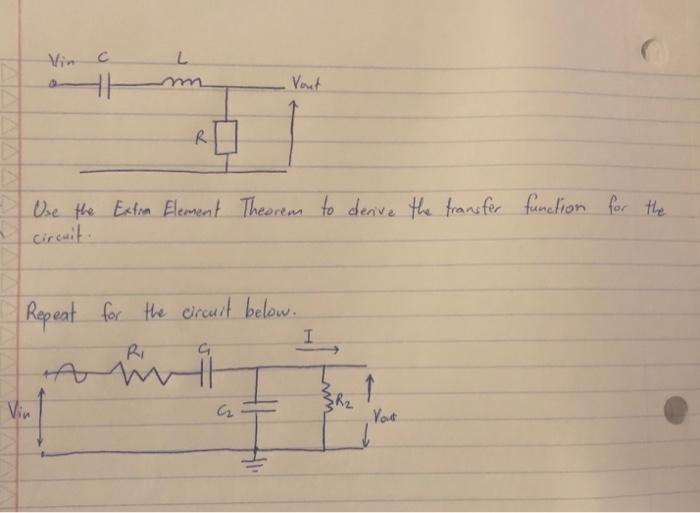 Vin C L
Vout
R
Use the Extra Element Theorem to derive the transfer function for the
circuit.
Repeat for the circuit below.
I
R1 C1
Vin C2 R2 Vout